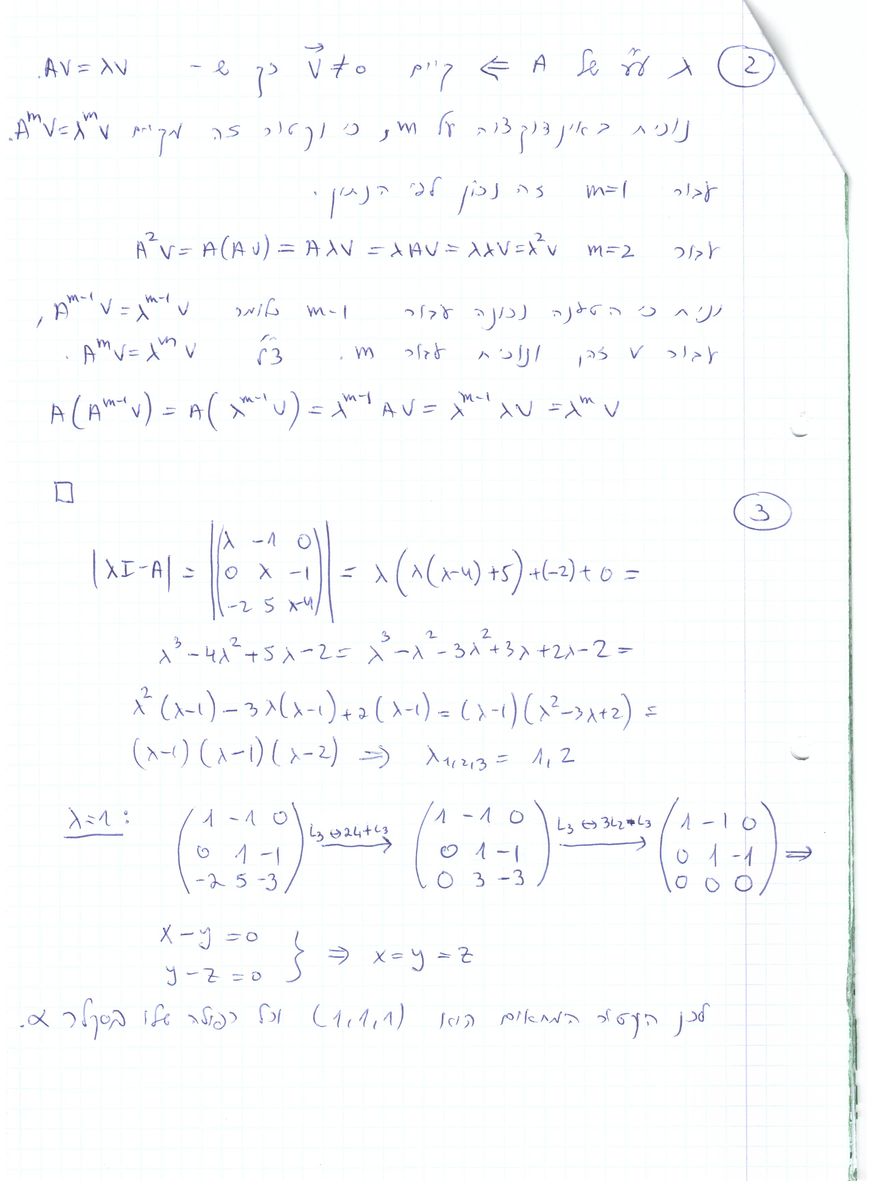 (2) λ ע"ע של A ⇐ קיים v⃗≠0 כך ש- Av=λv.
נוכיח באינדוקציה על m, כי וקטור זה מקיים A^m v=λ^m v.
עבור m=1 זה נכון לפי הנתון.
עבור m=2 A²v=A(Av)=Aλv=λAv=λλv=λ²v
נניח כי הטענה נכונה עבור m-1 כלומר A^{m-1}v=λ^{m-1}v,
עבור v זה, ונוכיח עבור m. צ"ל A^m v=λ^m v.
A(A^{m-1}v)=A(λ^{m-1}v)=λ^{m-1}Av=λ^{m-1}λv=λ^m v
□
(3)
|λI-A| = |(λ -1 0
0 λ -1
-2 5 λ-4)| = λ(λ(λ-4)+5)+(-2)+0=
λ³-4λ²+5λ-2=λ³-λ²-3λ²+3λ+2λ-2=
λ²(λ-1)-3λ(λ-1)+2(λ-1)=(λ-1)(λ²-3λ+2)=
(λ-1)(λ-1)(λ-2) ⇒ λ_{1,2,3}=1,2
λ=1: (1 -1 0
0 1 -1
-2 5 -3) L3↔2L1+L3 → (1 -1 0
0 1 -1
0 3 -3) L3↔3L2-L3 → (1 -1 0
0 1 -1
0 0 0) ⇒
x-y=0
y-z=0 } ⇒ x=y=z
לכן הוקטור המתאים הוא (1,1,1) וכל כפולה שלו בסקלר α.